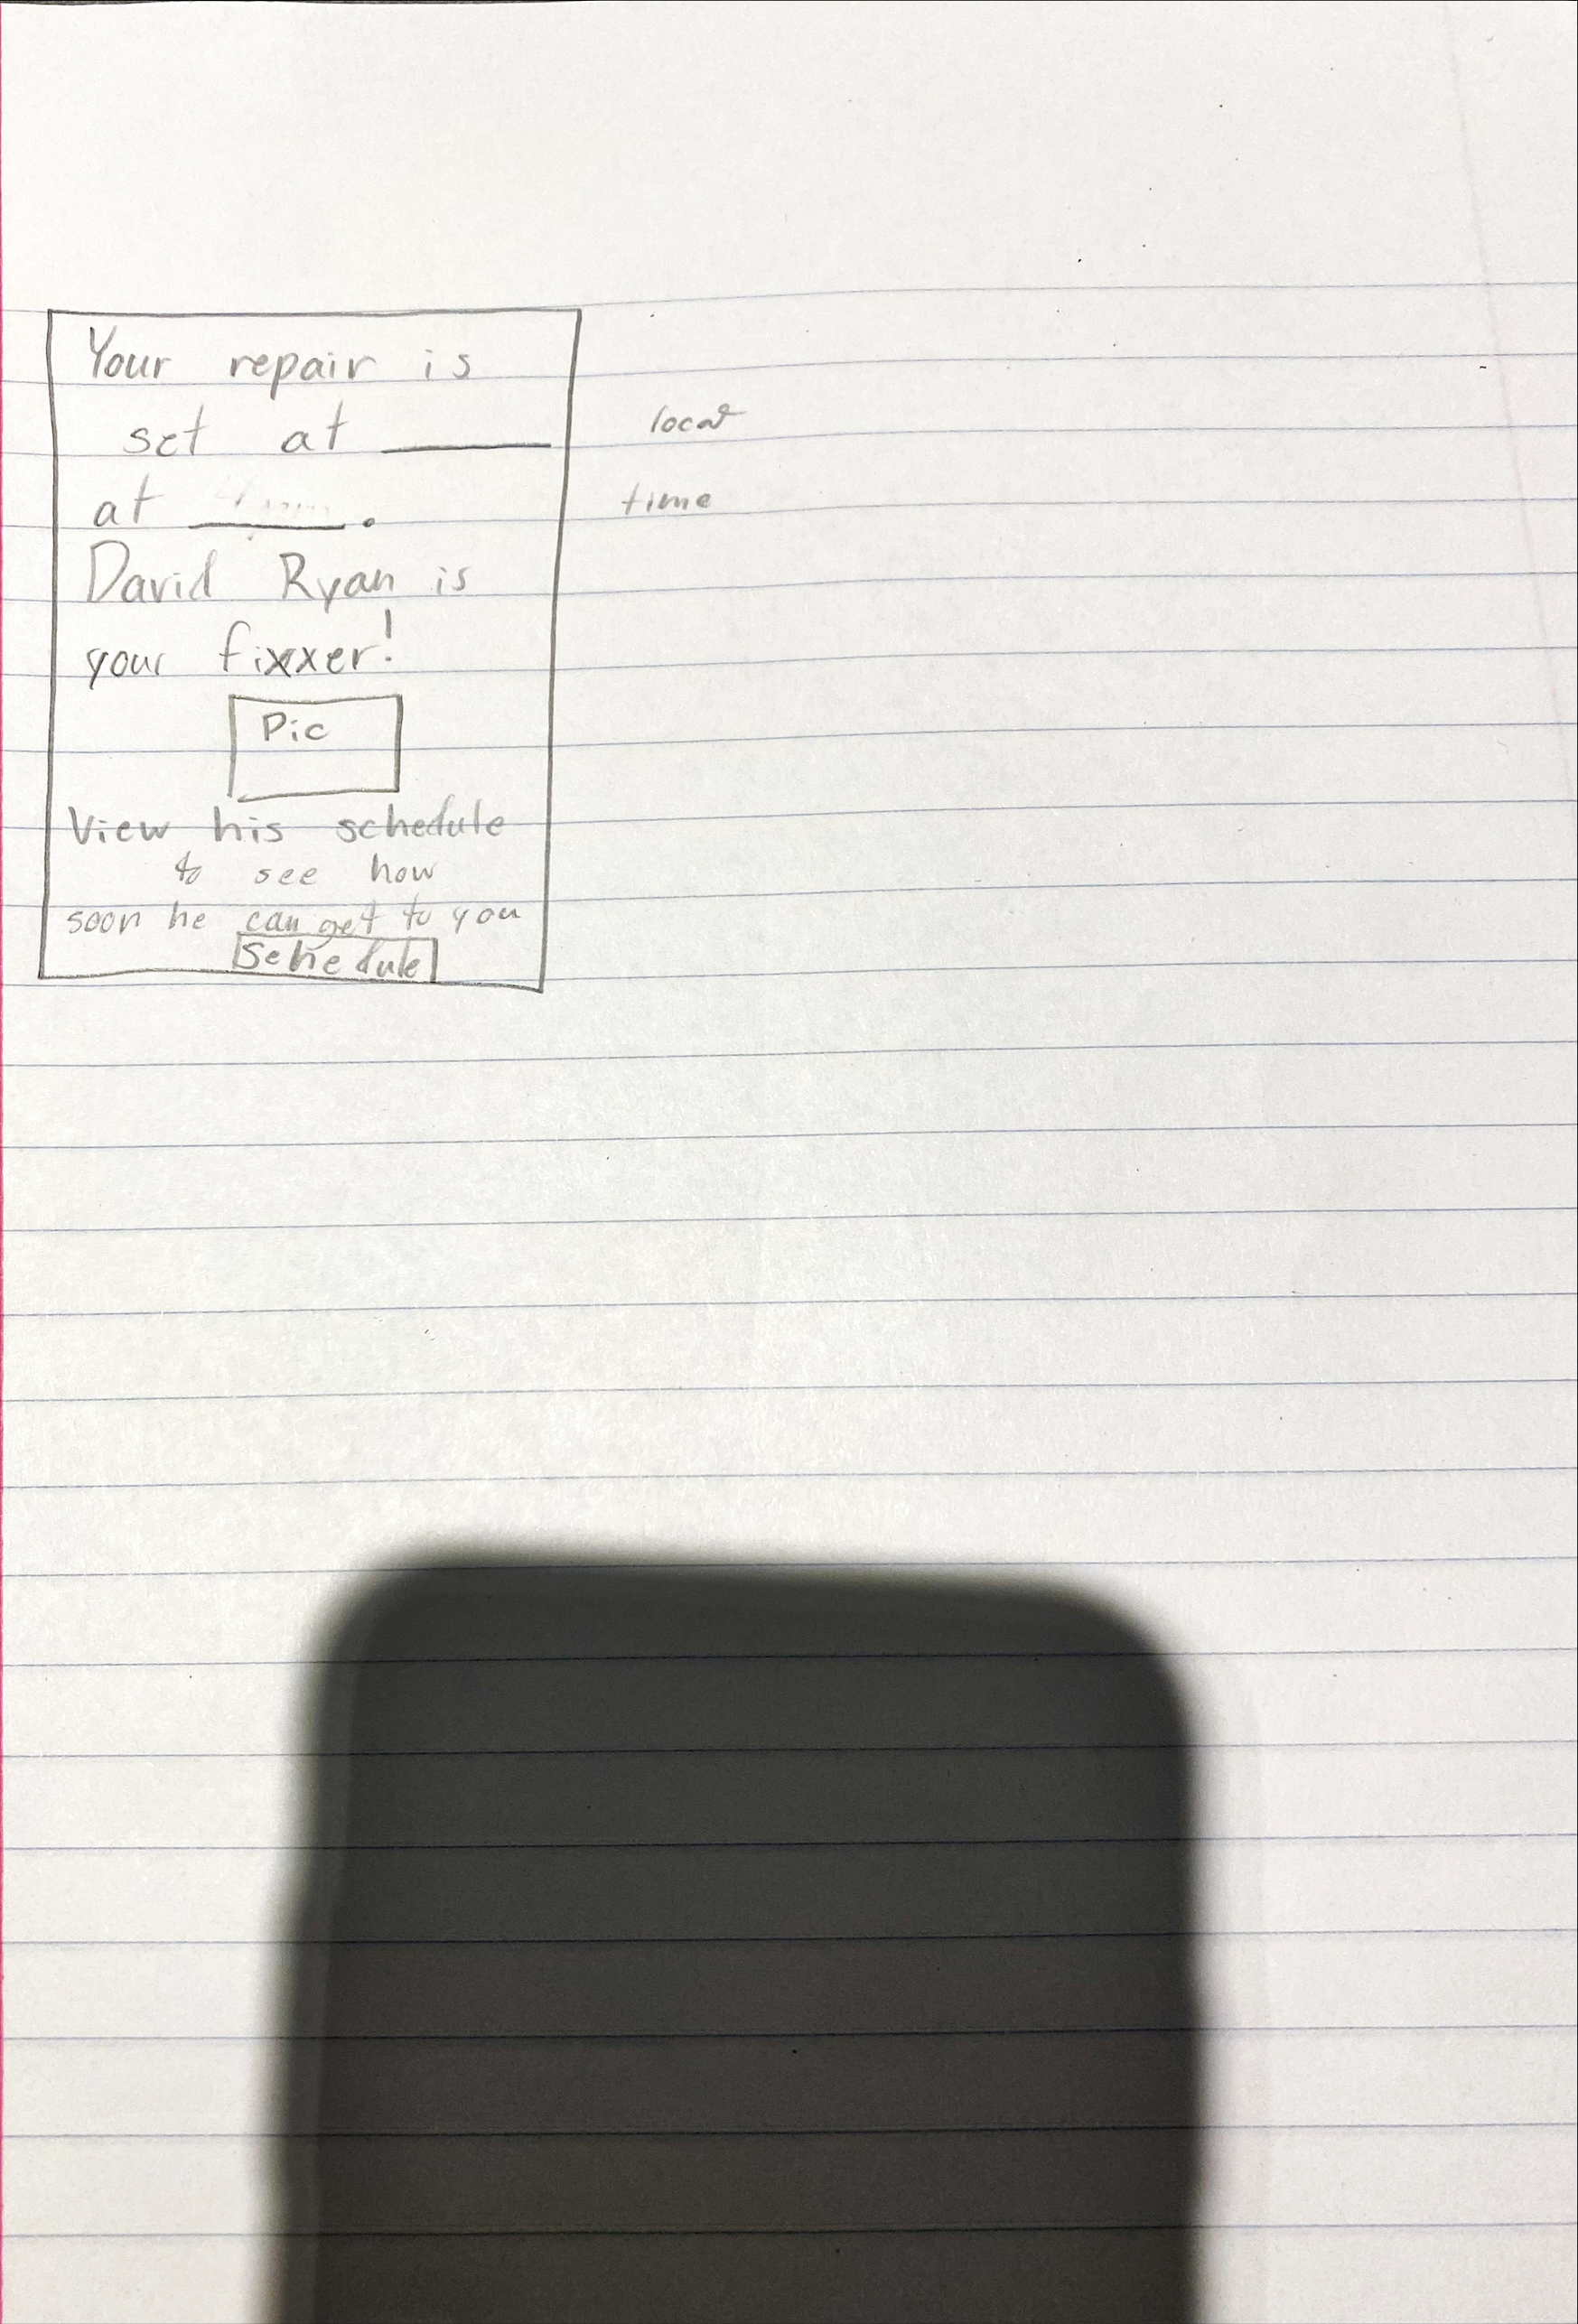 Your repair is
set at
locat
at
.
time
David Ryan is
your fixxer!
Pic
View his schedule
to see how
soon he can get to you
Schedule